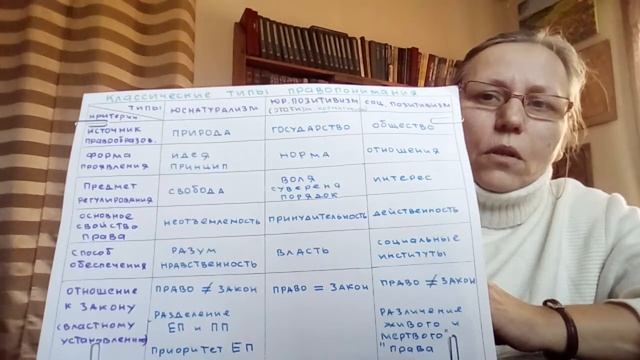 классические типы правопонимания
типы
критерии
юснатурализм
юр. позитивизм
соц. позитивизм
источник
правообразов.
природа
государство
общество
форма
проявления
идея
принцип
норма
отношения
предмет
регулирования
свобода
воля
суверена
порядок
интерес
основное
свойство
права
неотъемлемость
принудительность
действенность
способ
обеспечения
разум
нравственность
власть
социальные
институты
отношение
к закону
(властному
установлению)
право ≠ закон
разделение
ЕП и ПП
приоритет ЕП
право = закон
право ≠ закон
различение
"живого" и
"мертвого"
права